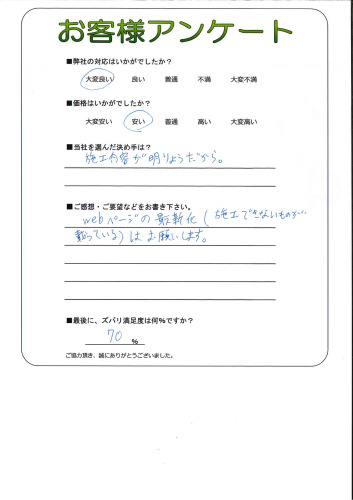 お客様アンケート
■弊社の対応はいかがでしたか?
大変良い 良い 普通 不満 大変不満
■価格はいかがでしたか?
大変安い 安い 普通 高い 大変高い
■当社を選んだ決め手は?
施工内容が明りょうだから。
■ご感想・ご要望などをお書き下さい。
webページの最新化(施工できないものが…
載っている)はお願いします。
■最後に、ズバリ満足度は何%ですか?
70 %
ご協力頂き、誠にありがとうございました。